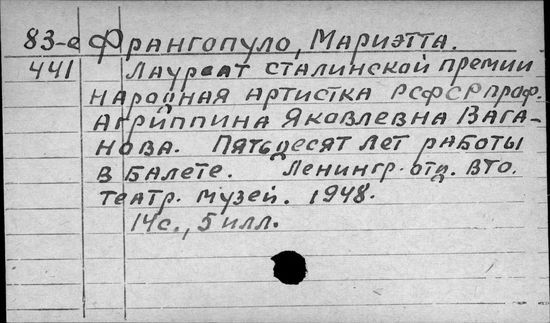 83-е Франгопуло, Мариэтта.
441 Лауреат сталинской премии
народная артистка РСФСР проф.
Агриппина Яковлевна Вага-
нова. Пятьдесят лет работы
в балете. Ленингр. отд. ВТО.
театр. музей. 1948.
14 с., 5 илл.